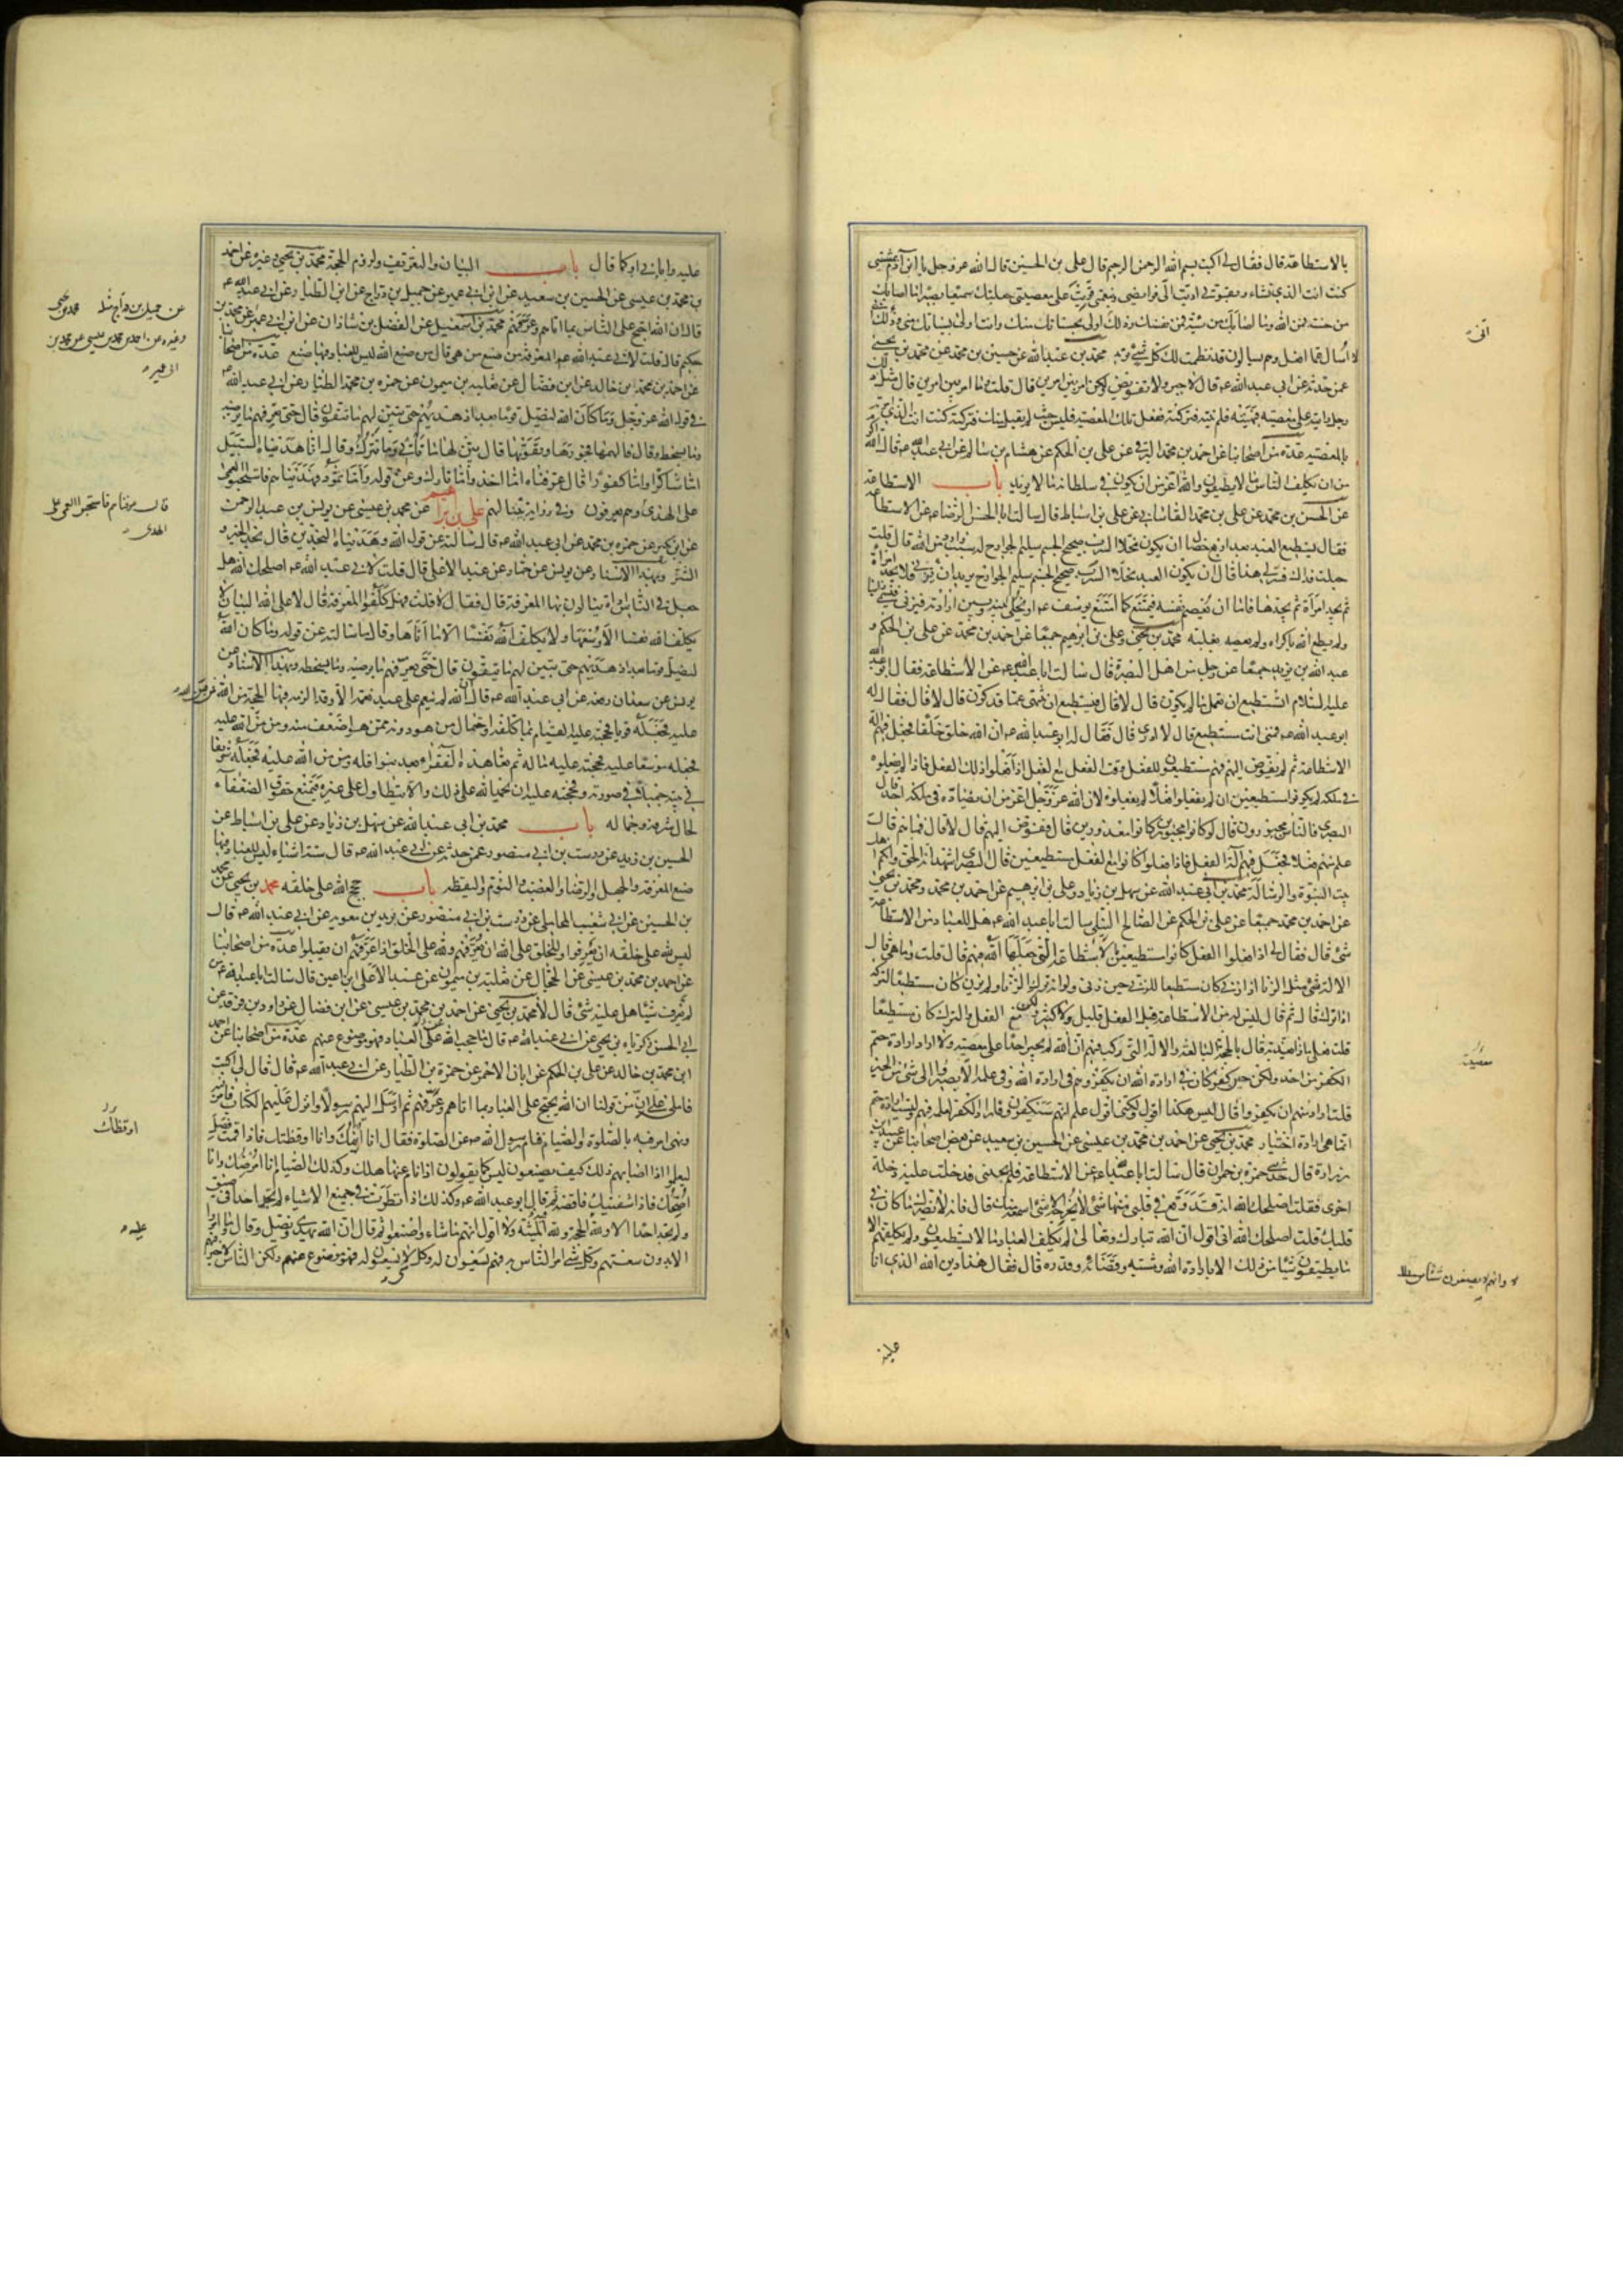 بالاستطاعة قال فقال لي اكتب بسم الله الرحمن الرحيم قال علي بن الحسين قال الله عز وجل يا ابن آدم بمشيتي
كنت انت الذي تشاء وبقوتي اديت الي فرائضي وبنعمتي قويت على معصيتي جعلتك سميعا بصيرا ما اصابك
من حسنة فمن الله وما اصابك من سيئة فمن نفسك وذلك اولى بحسناتك منك وانت اولى بسيئاتك مني وذلك اني
لا اسأل عما افعل وهم يسألون قد نظمت لك كل شيء تريد محمد بن عبدالله عن حسين بن محمد عن محمد بن يحيى
عمن حدثه عن ابي عبد الله عم قال لا جبر ولا تفويض ولكن امر بين امرين قال قلت وما امر بين امرين قال مثل ذلك
رجل رايته على معصية فنهيته فلم ينته فتركته ففعل تلك المعصية فليس حيث لم يقبل منك فتركته كنت انت الذي امرته
بالمعصية عدة من اصحابنا عن احمد بن محمد البرقي عن علي بن الحكم عن هشام بن سالم عن ابي عبدالله عم قال الله اكرم
من ان يكلف الناس ما لا يطيقون والله اعز من ان يكون في سلطانه ما لا يريد باب الاستطاعة
عن الحسن بن محمد عن علي بن محمد القاساني عن علي بن اسباط قال سالت ابا الحسن الرضا عم عن الاستطاعة
فقال يستطيع العبد بعد اربع خصال ان يكون مخلا السرب صحيح الجسم سليم الجوارح له سبب وارد من الله قال قلت
جعلت فداك فسر لي هذا قال ان يكون العبد مخلا السرب صحيح الجسم سليم الجوارح يريد ان يزني فلا يجد امراة
ثم يجد امراة ثم يجدها فاما ان يعصم نفسه فيمتنع كما امتنع يوسف عم او يخلي بينه وبين ارادته فيزني فيسمى زانيا
ولم يطع الله باكراه ولم يعصه بغلبة محمد بن يحيى وعلي بن ابرهيم جميعا عن احمد بن محمد عن علي بن الحكم و
عبد الله بن يزيد جميعا عن رجل من اهل البصرة قال سالت ابا عبدالله عم عن الاستطاعة فقال ابو عبد الله
عليه السلام اتستطيع ان تعمل ما لم يكون قال لا قال فتستطيع ان تنتهي عما قد كون قال لا قال فقال له
ابو عبد الله عم فمتى انت مستطيع قال لا ادري قال فقال له ابو عبد الله عم ان الله خلق خلقا فجعل فيهم آلة
الاستطاعة ثم لم يفوض اليهم فهم مستطيعون للفعل وقت الفعل مع الفعل اذا فعلوا ذلك الفعل فاذا لم يفعلوه
في ملكه لم يكونوا مستطيعين ان لم يفعلوا فعلا لم يفعلوه لان الله عز وجل اعز من ان يضاده في ملكه احد قال
البصري فالناس مجبورون قال لو كانوا مجبورين كانوا معذورين قال ففوض اليهم قال لا قال فما هم قال
علم منهم فعلا فجعل فيهم آلة الفعل فاذا فعلوا كانوا مع الفعل مستطيعين قال البصري اشهد انه الحق وانكم اهل
بيت النبوة والرسالة محمد بن ابي عبد الله عن سهل بن زياد وعلي بن ابرهيم عن احمد بن محمد ومحمد بن يحيى
عن احمد بن محمد جميعا عن علي بن الحكم عن الصالح النيلي سالت ابا عبد الله عم هل للعباد من الاستطاعة
شيء قال فقال لي اذا فعلوا الفعل كانوا مستطيعين بالاستطاعة التي جعلها الله فيهم قال قلت وما هي قال
الآلة مثل الزنا اذا زنى كان مستطيعا للزنى حين زنى ولو انه ترك الزنا ولم يزن كان مستطيعا لتركه
اذا ترك قال ثم قال ليس له من الاستطاعة قبل الفعل قليل ولا كثير ولكن مع الفعل والترك كان مستطيعا
قلت فعلى ماذا يعذبه قال بالحجة البالغة والآلة التي ركب فيهم ان الله لم يجبر احدا على معصيته ولا اراد ارادة حتم
الكفر من احد ولكن حين كفر كان في ارادة الله ان يكفر وهم في ارادة الله وفي علمه الا يصيروا الى شيء من الخير
قلت اراد منهم ان يكفروا قال ليس هكذا اقول ولكني اقول علم انهم سيكفرون فاراد الكفر لعلمه فيهم وليست ارادة حتم
انما هي ارادة اختيار محمد بن يحيى عن احمد بن محمد بن عيسى عن الحسين بن سعيد عن بعض اصحابنا عن عبيد بن
زرارة قال حدثني حمزة بن حمران قال سالت ابا عبدالله عم عن الاستطاعة فلم يجبني فدخلت عليه دخلة
اخرى فقلت اصلحك الله انه قد وقع في قلبي منها شيء لا يخرجه الا شيء اسمعه منك قال فانه لا يضرك ما كان في
قلبك قلت اصلحك الله اني اقول ان الله تبارك وتعالى لم يكلف العباد ما لا يستطيعون ولم يكلفهم الا
ما يطيقون شيئا من ذلك الا بارادة الله ومشيته وقضائه وقدره قال فقال هذا دين الله الذي انا
اني
معصيته
وانهم لا يصنعون شيئا من ذلك
عليه
عليه وآبائي او كما قال باب البيان والتعريف ولزوم الحجة محمد بن يحيى وغيره عن احمد
بن محمد بن عيسى عن الحسين بن سعيد عن ابن ابي عمير عن جميل بن دراج عن ابن الطيار عن ابي عبد الله عم
قال ان الله احتج على الناس بما اتاهم وعرفهم محمد بن اسمعيل عن الفضل بن شاذان عن ابن ابي عمير عن محمد بن
حكيم قال قلت لابي عبد الله عم المعرفة من صنع من هي قال من صنع الله ليس للعباد فيها صنع عدة من اصحابنا
عن احمد بن محمد بن خالد عن ابن فضال عن ثعلبة بن ميمون عن حمزة بن محمد الطيار عن ابي عبد الله عم
في قول الله عز وجل وما كان الله ليضل قوما بعد اذ هديهم حتى يبين لهم ما يتقون قال حتى يعرفهم ما يرضيه
وما يسخطه وقال فالهمها فجورها وتقويها قال بين لها ما تاتي وما تترك وقال انا هديناه السبيل
اما شاكرا واما كفورا قال عرفناه اما اخذ واما تارك وعن قوله واما ثمود فهديناهم فاستحبوا العمى
على الهدى وهم يعرفون وفي رواية بينا لهم علي بن ابرهيم عن محمد بن عيسى عن يونس بن عبد الرحمن
عن ابن بكير عن حمزة بن محمد عن ابي عبد الله عم قال سالته عن قول الله وهديناه النجدين قال نجد الخير و
الشر وبهذا الاسناد عن يونس عن حماد عن عبد الاعلى قال قلت لابي عبد الله عم اصلحك الله هل
جعل في الناس اداة ينالون بها المعرفة قال فقال لا قلت فهل كلفوا المعرفة قال لا على الله البيان لا
يكلف الله نفسا الا وسعها ولا يكلف الله نفسا الا ما اتاها وقال سالته عن قوله وما كان الله
ليضل قوما بعد اذ هديهم حتى يبين لهم ما يتقون قال حتى يعرفهم ما يرضيه وما يسخطه وبهذا الاسناد عن
يونس عن سعدان رفعه عن ابي عبد الله عم قال ان الله لم ينعم على عبد نعمة الا وقد الزمه فيها الحجة من الله فمن من الله
عليه فجعله قويا فحجته عليه القيام بما كلفه واحتمال من هو دونه ممن هو اضعف منه ومن من الله عليه
فجعله موسعا عليه فحجته عليه ماله ثم تعاهده الفقراء بعد بنوافله ومن من الله عليه فجعله شريفا
في بيته جميلا في صورته فحجته عليه ان يحمد الله على ذلك والا يتطاول على غيره فيمنع حقوق الضعفاء
لحال شرفه وجماله باب محمد بن ابي عبد الله عن سهل بن زياد عن علي بن اسباط عن
الحسين بن زيد عن درست بن ابي منصور عمن حدثه عن ابي عبد الله عم قال ستة اشياء ليس للعباد فيها
صنع المعرفة والجهل والرضا والغضب والنوم واليقظة باب حجج الله على خلقه محمد بن يحيى عن محمد
بن الحسين عن ابي شعيب المحاملي عن درست بن ابي منصور عن بريد بن معوية عن ابي عبد الله عم قال
ليس لله على خلقه ان يعرفوا وللخلق على الله ان يعرفهم ولله على الخلق اذا عرفهم ان يقبلوا عدة من اصحابنا
عن احمد بن محمد بن عيسى عن الحجال عن ثعلبة بن ميمون عن عبد الاعلى بن اعين قال سالت ابا عبدالله عم من
لم يعرف شيئا هل عليه شيء قال لا محمد بن يحيى عن احمد بن محمد بن عيسى عن ابن فضال عن داود بن فرقد عن
ابي الحسن زكرياء بن يحيى عن ابي عبد الله عم قال ما حجب الله عن العباد فهو موضوع عنهم عدة من اصحابنا عن احمد
ابن محمد بن خالد عن علي بن الحكم عن ابان الاحمر عن حمزة بن الطيار عن ابي عبد الله عم قال قال لي اكتب
فاملى علي ان من قولنا ان الله يحتج على العباد بما اتاهم وعرفهم ثم ارسل اليهم رسولا وانزل عليهم الكتاب فامر فيه
ونهى امر فيه بالصلوة والصيام فنام رسول الله ص عن الصلوة فقال انا انيمك وانا اوقظتك فاذا قمت فصل
ليعلموا اذا اصابهم ذلك كيف يصنعون ليس كما يقولون اذا نام عنها هلك وكذلك الصيام انا امرضك وانا
اصحك فاذا شفيتك فاقضه ثم قال ابو عبد الله عم وكذلك اذا نظرت في جميع الاشياء لم تجد احدا في ضيق
ولم تجد احدا الا ولله عليه الحجة ولله فيه المشية ولا اقول انهم ما شاءوا صنعوا ثم قال ان الله يهدي ويضل وقال وما امروا
الا بدون سعتهم وكل شيء امر الناس به فهم يسعون له وكل شيء لا يسعون له فهو موضوع عنهم ولكن الناس لا خير فيهم
عن جميل بن دراج مثله محمد بن يحيى
وغيره عن احمد بن محمد بن عيسى عن محمد بن
ابي عمير
قال عرفناهم فاستحبوا العمى على
الهدى
اوقظك
عليه